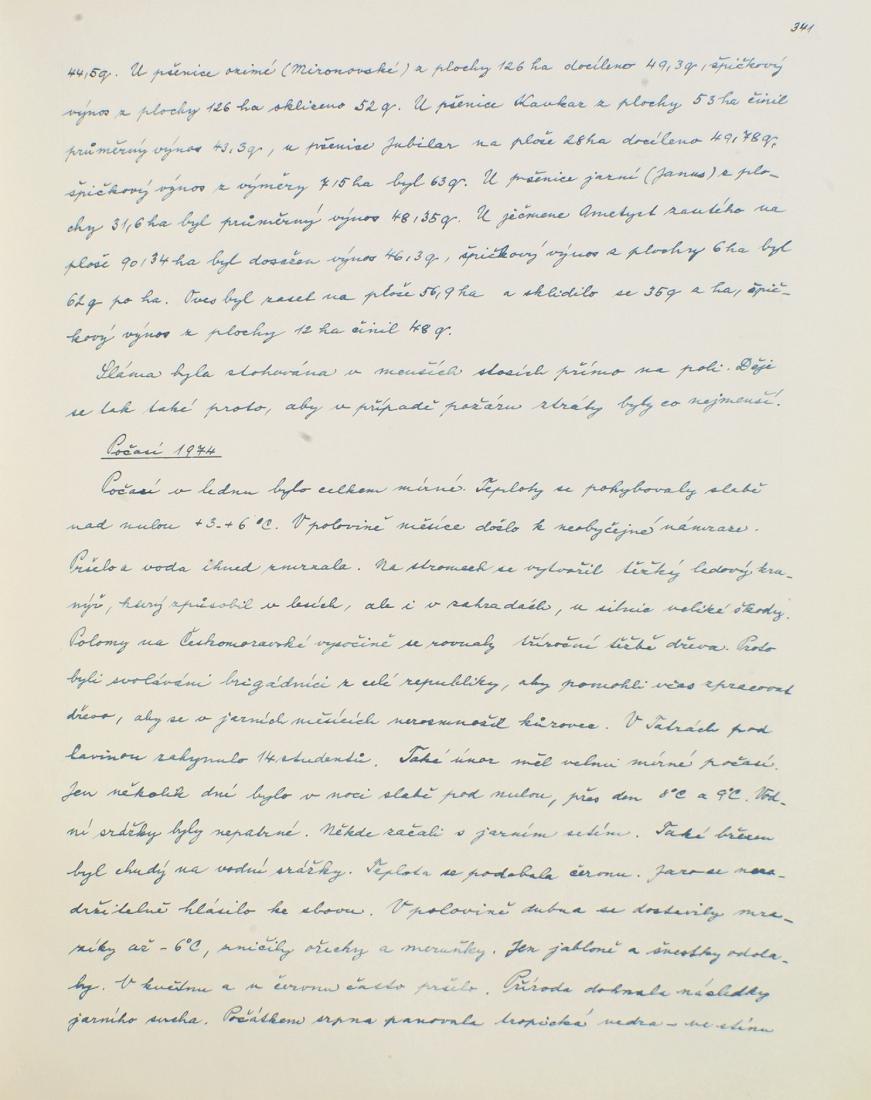 341
44,5q. U pšenice ozimé (Mironovské) z plochy 126 ha docíleno 49,3q, špičkový
výnos z plochy 126 ha sklizeno 52 q. U pšenice Kavkaz z plochy 53 ha činil
průměrný výnos 43,3q, u pšenice Jubilar na ploše 28 ha docíleno 49,78q,
špičkový výnos z výměry 7,15 ha byl 63 q. U pšenice jarní (Janus) z plo-
chy 31,6 ha byl průměrný výnos 48,35q. U ječmene Ametyst zasetého na
ploše 90,34 ha byl dosažen výnos 46,3q, špičkový výnos z plochy 6 ha byl
62 q po ha. Oves byl zaset na ploše 56,9 ha a sklidilo se 35q z ha, špič-
kový výnos z plochy 12 ha činil 48 q.
Sláma byla stohována v menších stozích přímo na poli. Děje
se tak také proto, aby v případě požáru ztráty byly co nejmenší.
Počasí 1974
Počasí v lednu bylo celkem mírné. Teploty se pohybovaly slabě
nad nulou +3-+6 °C. V polovině měsíce došlo k neobyčejné námraze.
Pršelo a voda ihned zmrzala. Na stromech se vytvořil těžký ledový kru-
nýř, který způsobil v lesích, ale i v zahradách, u silnic veliké škody.
Polomy na Českomoravské vysočině se rovnaly tříroční těžbě dřeva. Proto
byli svoláváni brigádníci z celé republiky, aby pomohli včas zpracovat
dřevo, aby se v jarních měsících nerozmnožil kůrovec. V Tatrách pod
lavinou zahynulo 14 studentů. Také únor měl velmi mírné počasí.
Jen několik dní bylo v noci slabě pod nulou, přes den 8°C a 9°C. Vod-
ní srážky byly nepatrné. Někde začali s jarním setím. Také březen
byl chudý na vodní srážky. Teplota se podobala červnu. Jaro se neza-
držitelně hlásilo ke slovu. V polovině dubna se dostavily mra-
zíky až - 6°C, zničily ořechy a meruňky. Jen jabloně a švestky odola-
ly. V květnu a v červnu často pršelo. Příroda dohnala následky
jarního sucha. Počátkem srpna panovala tropická vedra - ve stínu